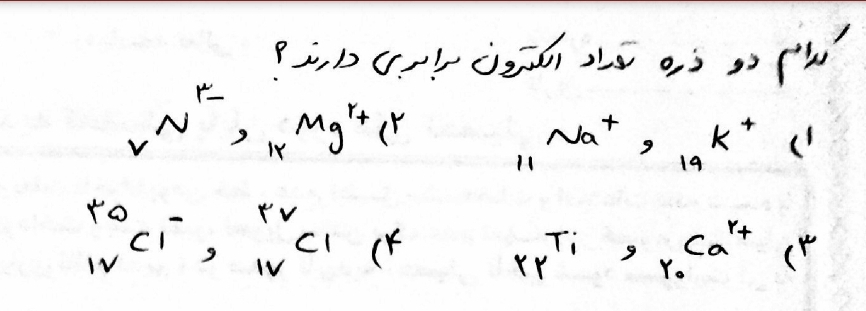 کدام دو ذره تعداد الکترون برابری دارند؟
۱) ₁₉K⁺ و ₁₁Na⁺ ۲) ₁₂Mg²⁺ و ₇N³⁻
۳) ₂₀Ca²⁺ و ₂₂Ti ۴) ³⁷₁₇Cl و ³⁵₁₇Cl⁻